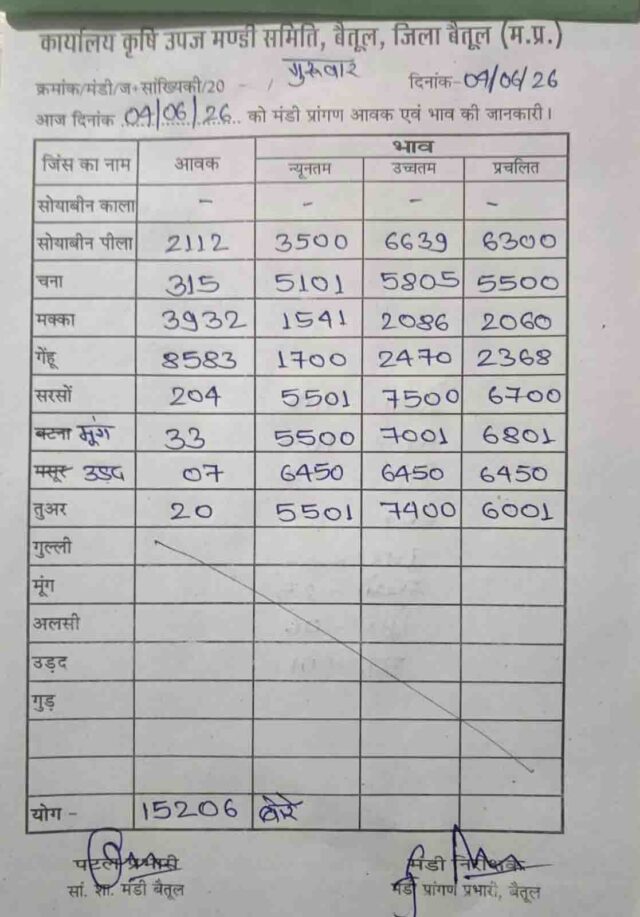 कार्यालय कृषि उपज मण्डी समिति, बैतूल, जिला बैतूल (म.प्र.)
गुरूवार
क्रमांक/मंडी/ज.सांख्यिकी/20 - / दिनांक-04/06/26
आज दिनांक 04/06/26 को मंडी प्रांगण आवक एवं भाव की जानकारी।
जिंस का नाम आवक भाव
न्यूनतम उच्चतम प्रचलित
सोयाबीन काला - - - -
सोयाबीन पीला 2112 3500 6639 6300
चना 315 5101 5805 5500
मक्का 3932 1541 2086 2060
गेंहू 8583 1700 2470 2368
सरसों 204 5501 7500 6700
बटना मूंग 33 5500 7001 6801
मसूर उड़द 07 6450 6450 6450
तुअर 20 5501 7400 6001
गुल्ली
मूंग
अलसी
उड़द
गुड़
योग - 15206 बोरे
प्रभारी मंडी निरीक्षक
सां. शा. मंडी बैतूल मंडी प्रांगण प्रभारी, बैतूल